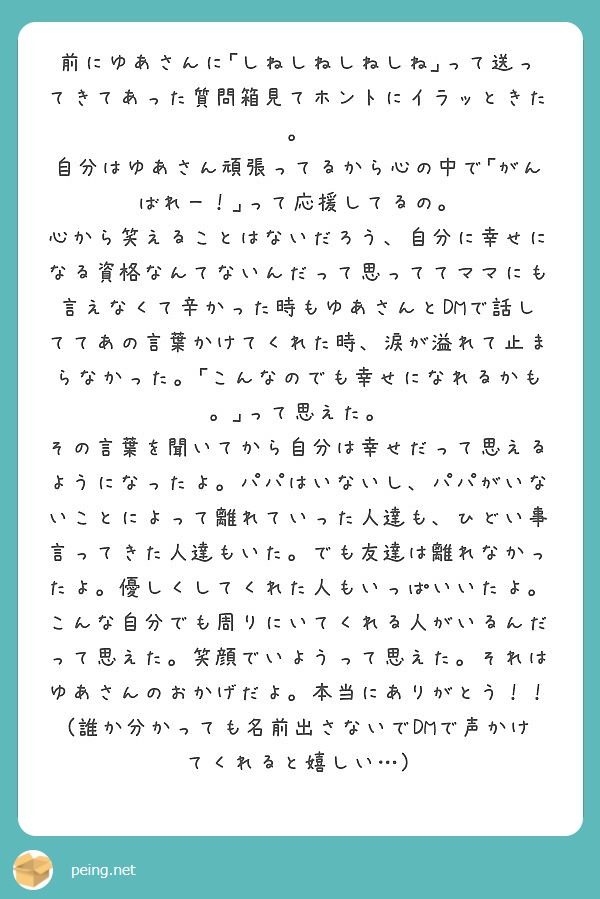 前にゆあさんに「しねしねしねしね」って送っ
てきてあった質問箱見てホントにイラッときた
。
自分はゆあさん頑張ってるから心の中で「がん
ばれー！」って応援してるの。
心から笑えることはないだろう、自分に幸せに
なる資格なんてないんだって思っててママにも
言えなくて辛かった時もゆあさんとDMで話し
ててあの言葉かけてくれた時、涙が溢れて止ま
らなかった。「こんなのでも幸せになれるかも
。」って思えた。
その言葉を聞いてから自分は幸せだって思える
ようになったよ。パパはいないし、パパがいな
いことによって離れていった人達も、ひどい事
言ってきた人達もいた。でも友達は離れなかっ
たよ。優しくしてくれた人もいっぱいいたよ。
こんな自分でも周りにいてくれる人がいるんだ
って思えた。笑顔でいようって思えた。それは
ゆあさんのおかげだよ。本当にありがとう！！
(誰か分かっても名前出さないでDMで声かけ
てくれると嬉しい…)
peing.net